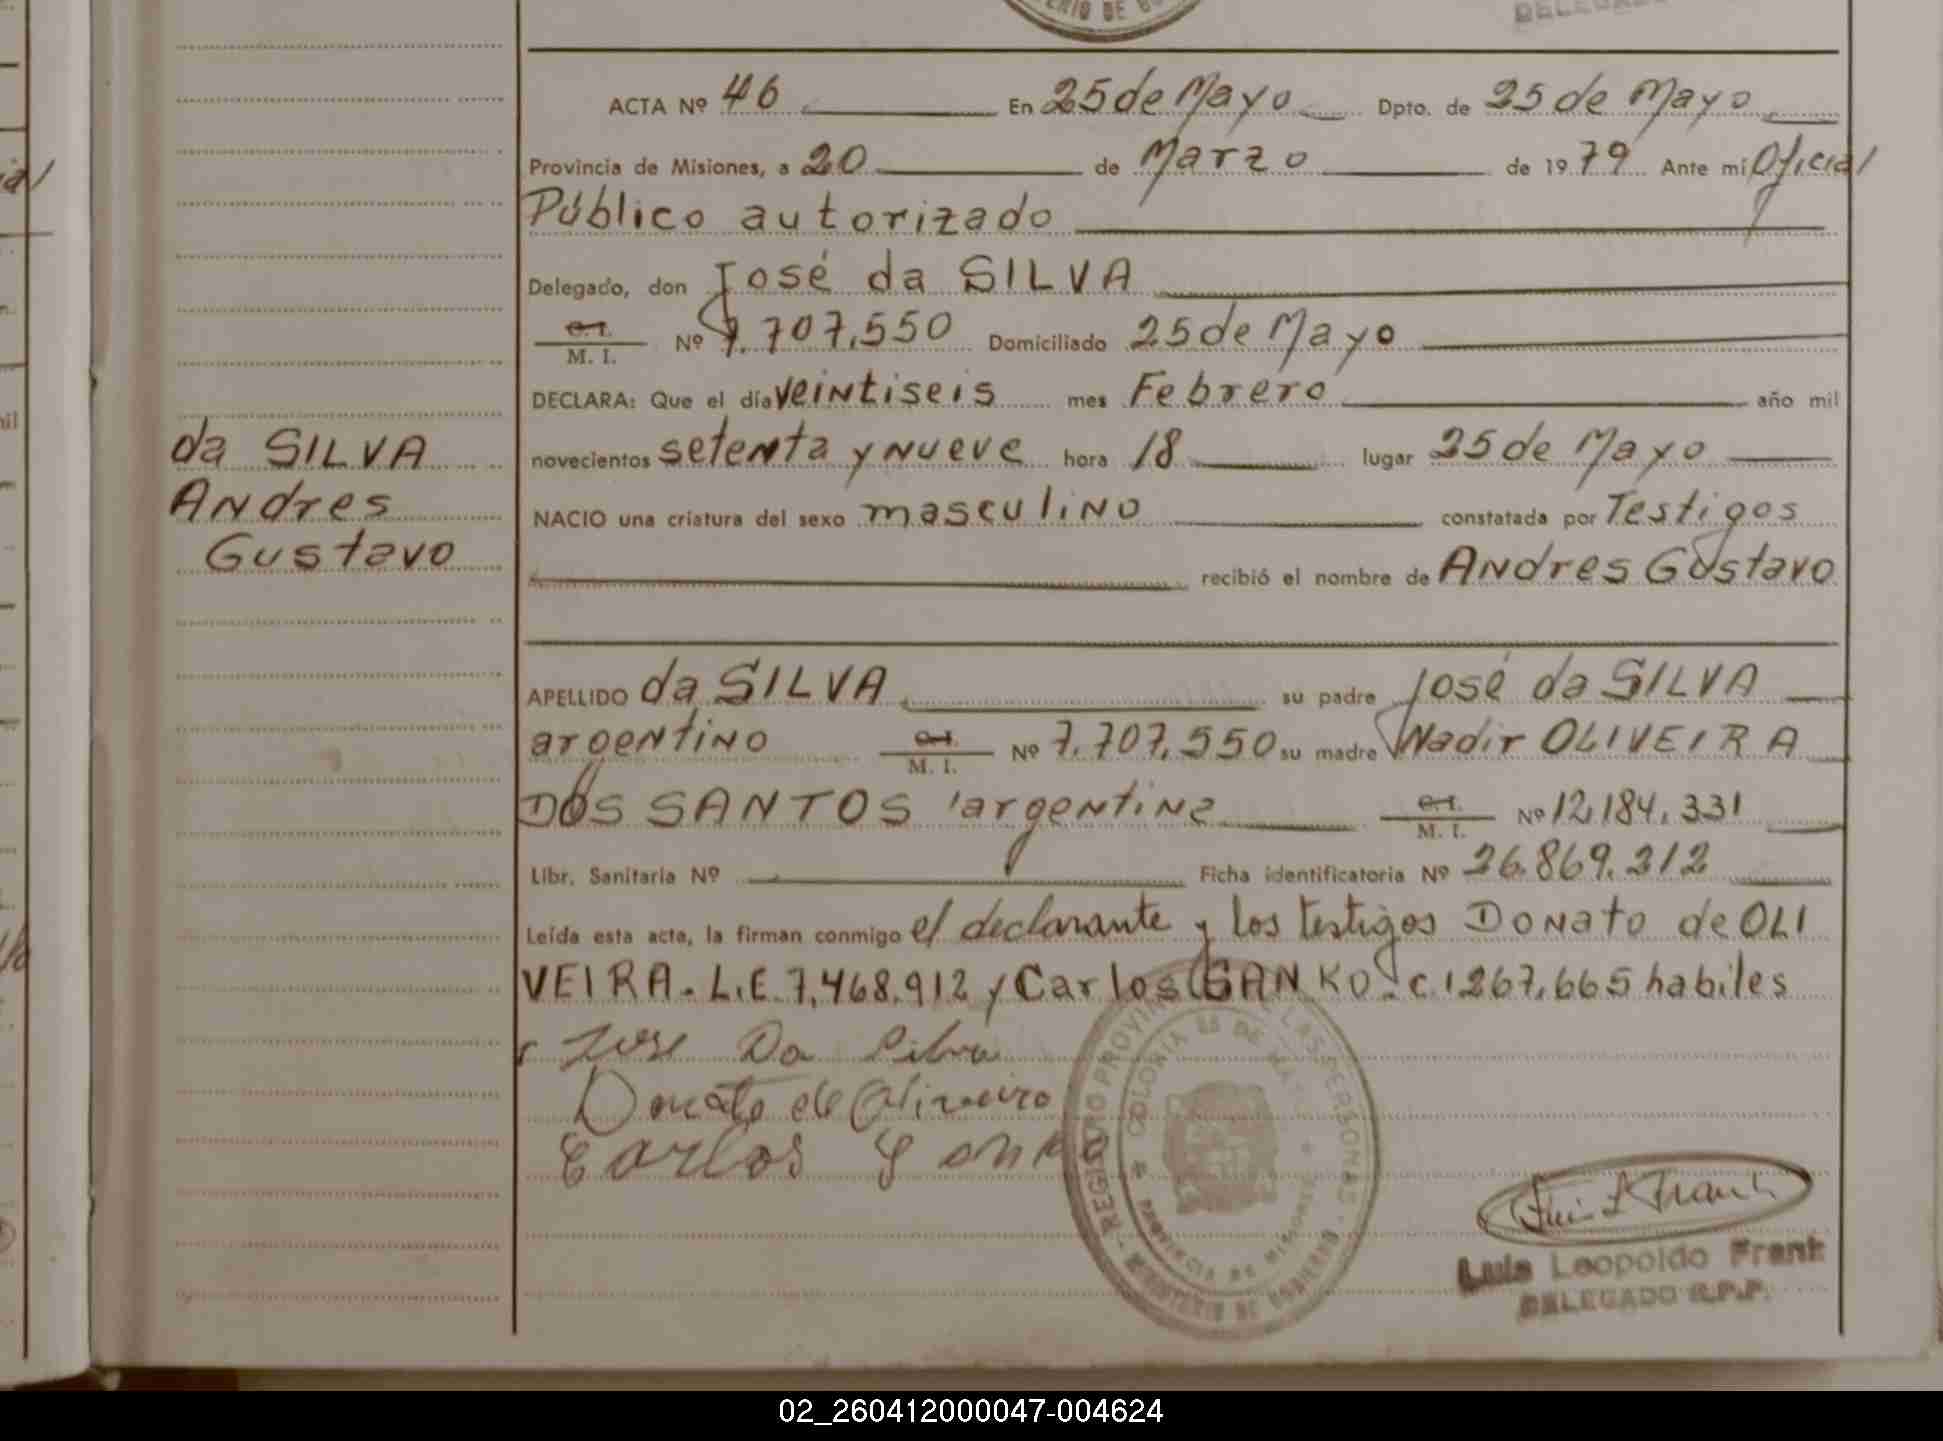 TERIO DE GO
DELEGADO
ACTA Nº 46 En 25 de Mayo Dpto. de 25 de Mayo
Provincia de Misiones, a 20 de Marzo de 1979 Ante mí Oficial
Público autorizado
Delegado, don José da SILVA
C.I. M. I. Nº 7.707.550 Domiciliado 25 de Mayo
DECLARA: Que el día veintiseis mes Febrero año mil
novecientos setenta y nueve hora 18 lugar 25 de Mayo
NACIO una criatura del sexo masculino constatada por Testigos
recibió el nombre de Andres Gustavo
da SILVA
Andres
Gustavo
APELLIDO da SILVA su padre José da SILVA
argentino C.I. M. I. Nº 7.707.550 su madre Nadir OLIVEIRA
DOS SANTOS argentina C.I. M. I. Nº 12.184.331
Libr. Sanitaria Nº Ficha identificatoria Nº 26.869.212
Leída esta acta, la firman conmigo el declarante y los testigos Donato de OLI
VEIRA. L.E. 7.468.912 y Carlos GANKO. c.i 267.665 habiles
Jose Da Silva
Donato de Oliveira
Carlos Ganko
REGISTRO PROVINCIAL DE LAS PERSONAS - MINISTERIO DE GOBIERNO
COLONIA 25 DE MAYO * PROVINCIA DE MISIONES *
Luis L Frank
Luis Leopoldo Frank
DELEGADO R.P.P.
02_260412000047-004624